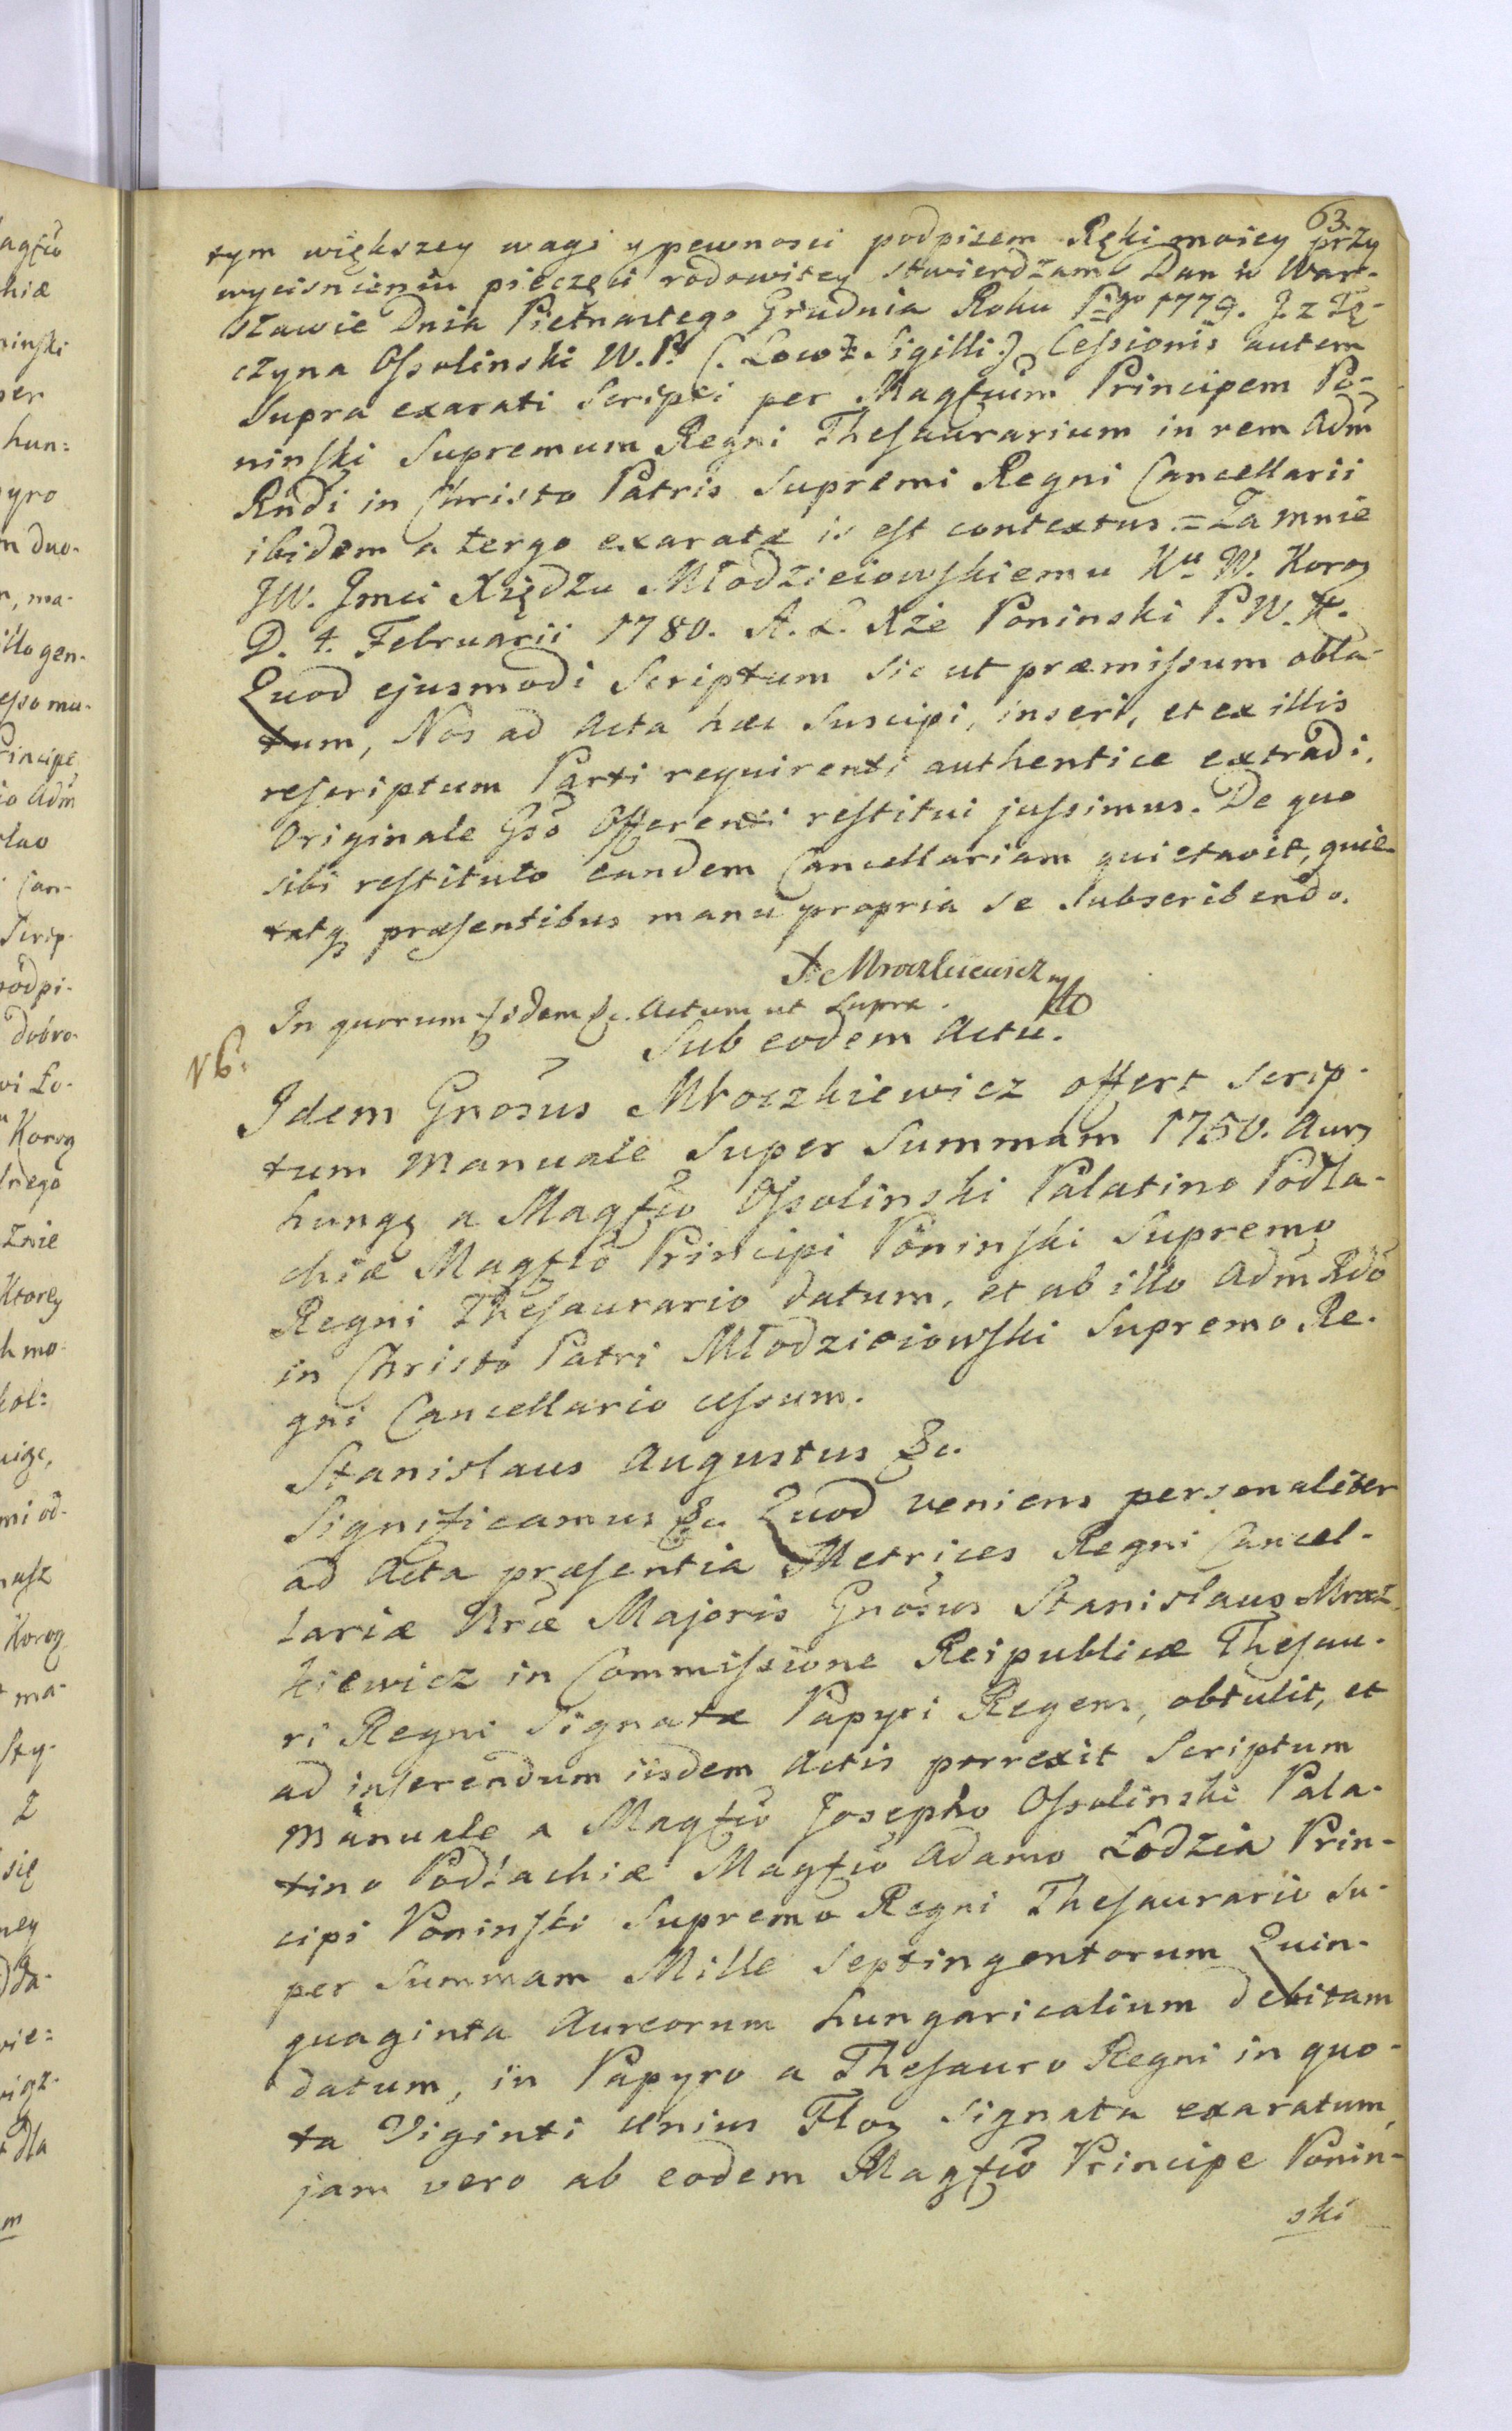 63.
tym większey wagi y pewnosci podpisem Ręki moiey przy
wycisnieniu pieczęci rodowitey stwierdzam Dan w War-
szawie Dnia Pietnastego Grudnia Roku 1779. J z Tę-
czyna Ossolinski W. P. (. Loco Sigilli .) Cessionis autem
supra exarati Scripti per Magfcum Principem Po-
ninski Supremum Regni Thesaurarium in rem Adm
Rndi in Christo Patris Supremi Regni Cancellarii
ibidem a tergo exaratæ is est contextus. = Za mnie
JW. Jmci Xiędzu Młodzieiowskiemu Ku W. Koron
D. 4. Februarii 1780. A. Ł. Xże Poninski P. W. K.
Quod ejusmodi Scriptum sic ut præmissum obla-
tum, Nos ad Acta hæc suscipi, inseri, et ex illis
rescriptum Parti requirenti authentice extradi.
Originale Gso Offerenti restitui jussimus. De quo
sibi restituto eandem Cancellariam quietavit, quie-
tatq præsentibus manu propria se subscribendo.
S. Mroczkiewicz
In quorum fidem &c. Actum ut supra.
Sub eodem Actu.
Nb:
Idem Gnosus Mroczkiewicz offert scrip-
tum manuale super summam 1750. Aur
hung a Magfco Ossolinski Palatino Podla-
chiæ Magfco Principi Poninski Supremo
Regni Thesaurario datum, et ab illo Adm Rdo
in Christo Patri Młodzieiowski Supremo Re-
gni Cancellario cessum.
Stanislaus Augustus &c.
Significamus &c. Quod veniens personaliter
ad Acta præsentia Metrices Regni Cancel-
lariæ Nræ Majoris Gnosus Stanislaus Mrocz-
kiewicz in Commissione Reipublicæ Thesau-
ri Regni Signatæ Papyri Regens, obtulit, et
ad inserendum iisdem Actis porrexit Scriptum
manuale a Magfco Josepho Ossolinski Pala-
tino Podlachiæ Magfco Adamo Łodzia Prin-
cipi Poninski Supremo Regni Thesaurario su-
per summam Mille Septingentorum Quin-
quaginta Aureorum hungaricalium debitam
datum, in Papyro a Thesauro Regni in quo-
ta Viginti unius Flor signata exaratum,
jam vero ab eodem Magfco Principe Ponin-
ski